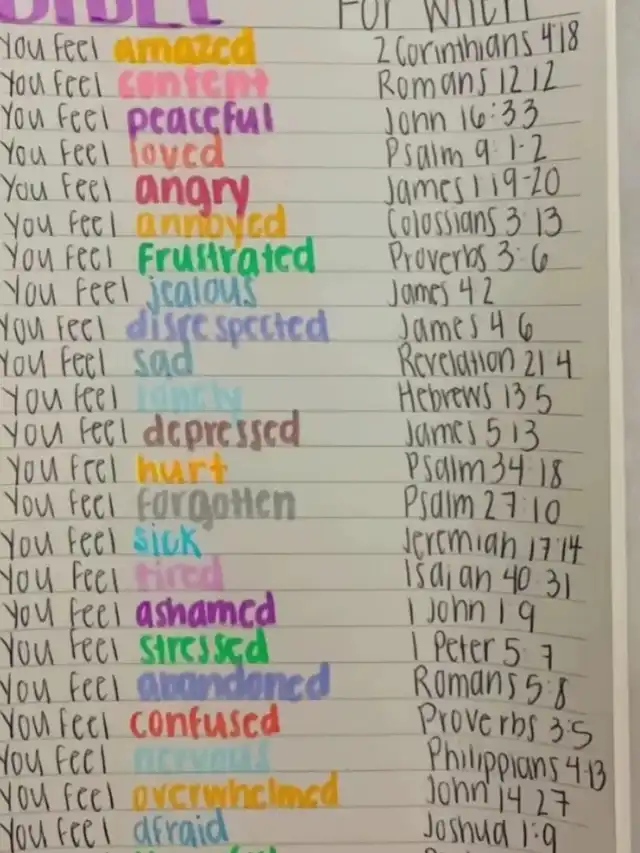 BIBLE For When
You Feel amazed 2 Corinthians 4:18
You Feel content Romans 12 12
You Feel peaceful John 16:33
You Feel loved Psalm 9:1-2
You Feel angry James 1 19-20
You Feel annoyed Colossians 3:13
You Feel Frustrated Proverbs 3:6
You Feel jealous James 4 2
You Feel disrespected James 4 6
You Feel sad Revelation 21 4
You Feel lonely Hebrews 13 5
You Feel depressed James 5 13
You Feel hurt Psalm 34:18
You Feel Forgotten Psalm 27:10
You Feel sick Jeremiah 17:14
You Feel tired Isaiah 40:31
You Feel ashamed 1 John 1 9
You Feel stressed 1 Peter 5:7
You Feel abandoned Romans 5:8
You Feel confused Proverbs 3:5
You Feel nervous Philippians 4:13
You Feel overwhelmed John 14 27
You Feel afraid Joshua 1:9